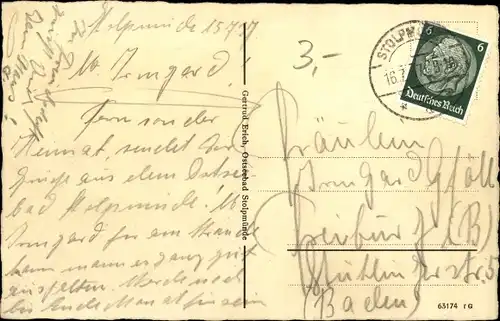 Stolpmünde 15.7.37
Lb. Irmgard!
Fern von der
Heimat, sendet Dir
Grüße aus dem Ostsee-
bad Stolpmünde! Lb.
Irmgard hier am Strande
kann man es ganz gut
aushalten. Werde noch
bis Ende Monat hier sein
Gertrud Erich, Ostseebad Stolpmünde
3,-
STOLPMÜ
16.7.
6 6
Deutsches Reich
Fräulein
Irmgard
Freiburg i/(B)
str. 5
(Baden)
63174 f G